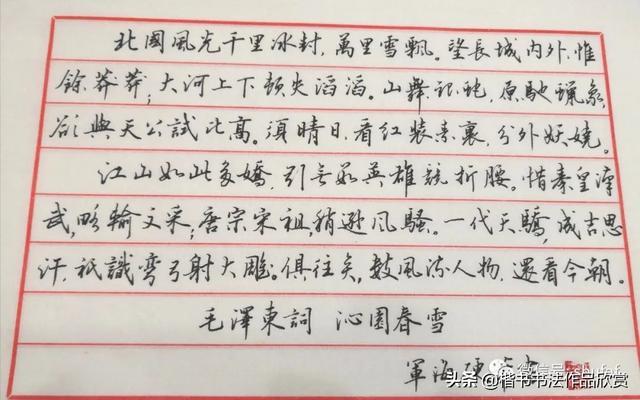 北國風光千里冰封,萬里雪飄。望長城内外,惟
餘莽莽;大河上下頓失滔滔。山舞銀蛇,原馳蠟象,
欲與天公試比高。須晴日,看紅裝素裹,分外妖嬈。
江山如此多嬌,引無數英雄競折腰。惜秦皇漢
武,略輸文采;唐宗宋祖,稍遜风騷。一代天驕,成吉思
汗,祇識彎弓射大雕。俱往矣,數風流人物,還看今朝。
毛澤東詞 沁園春雪
軍海硬筆
微信号
头条 @楷书书法作品欣赏